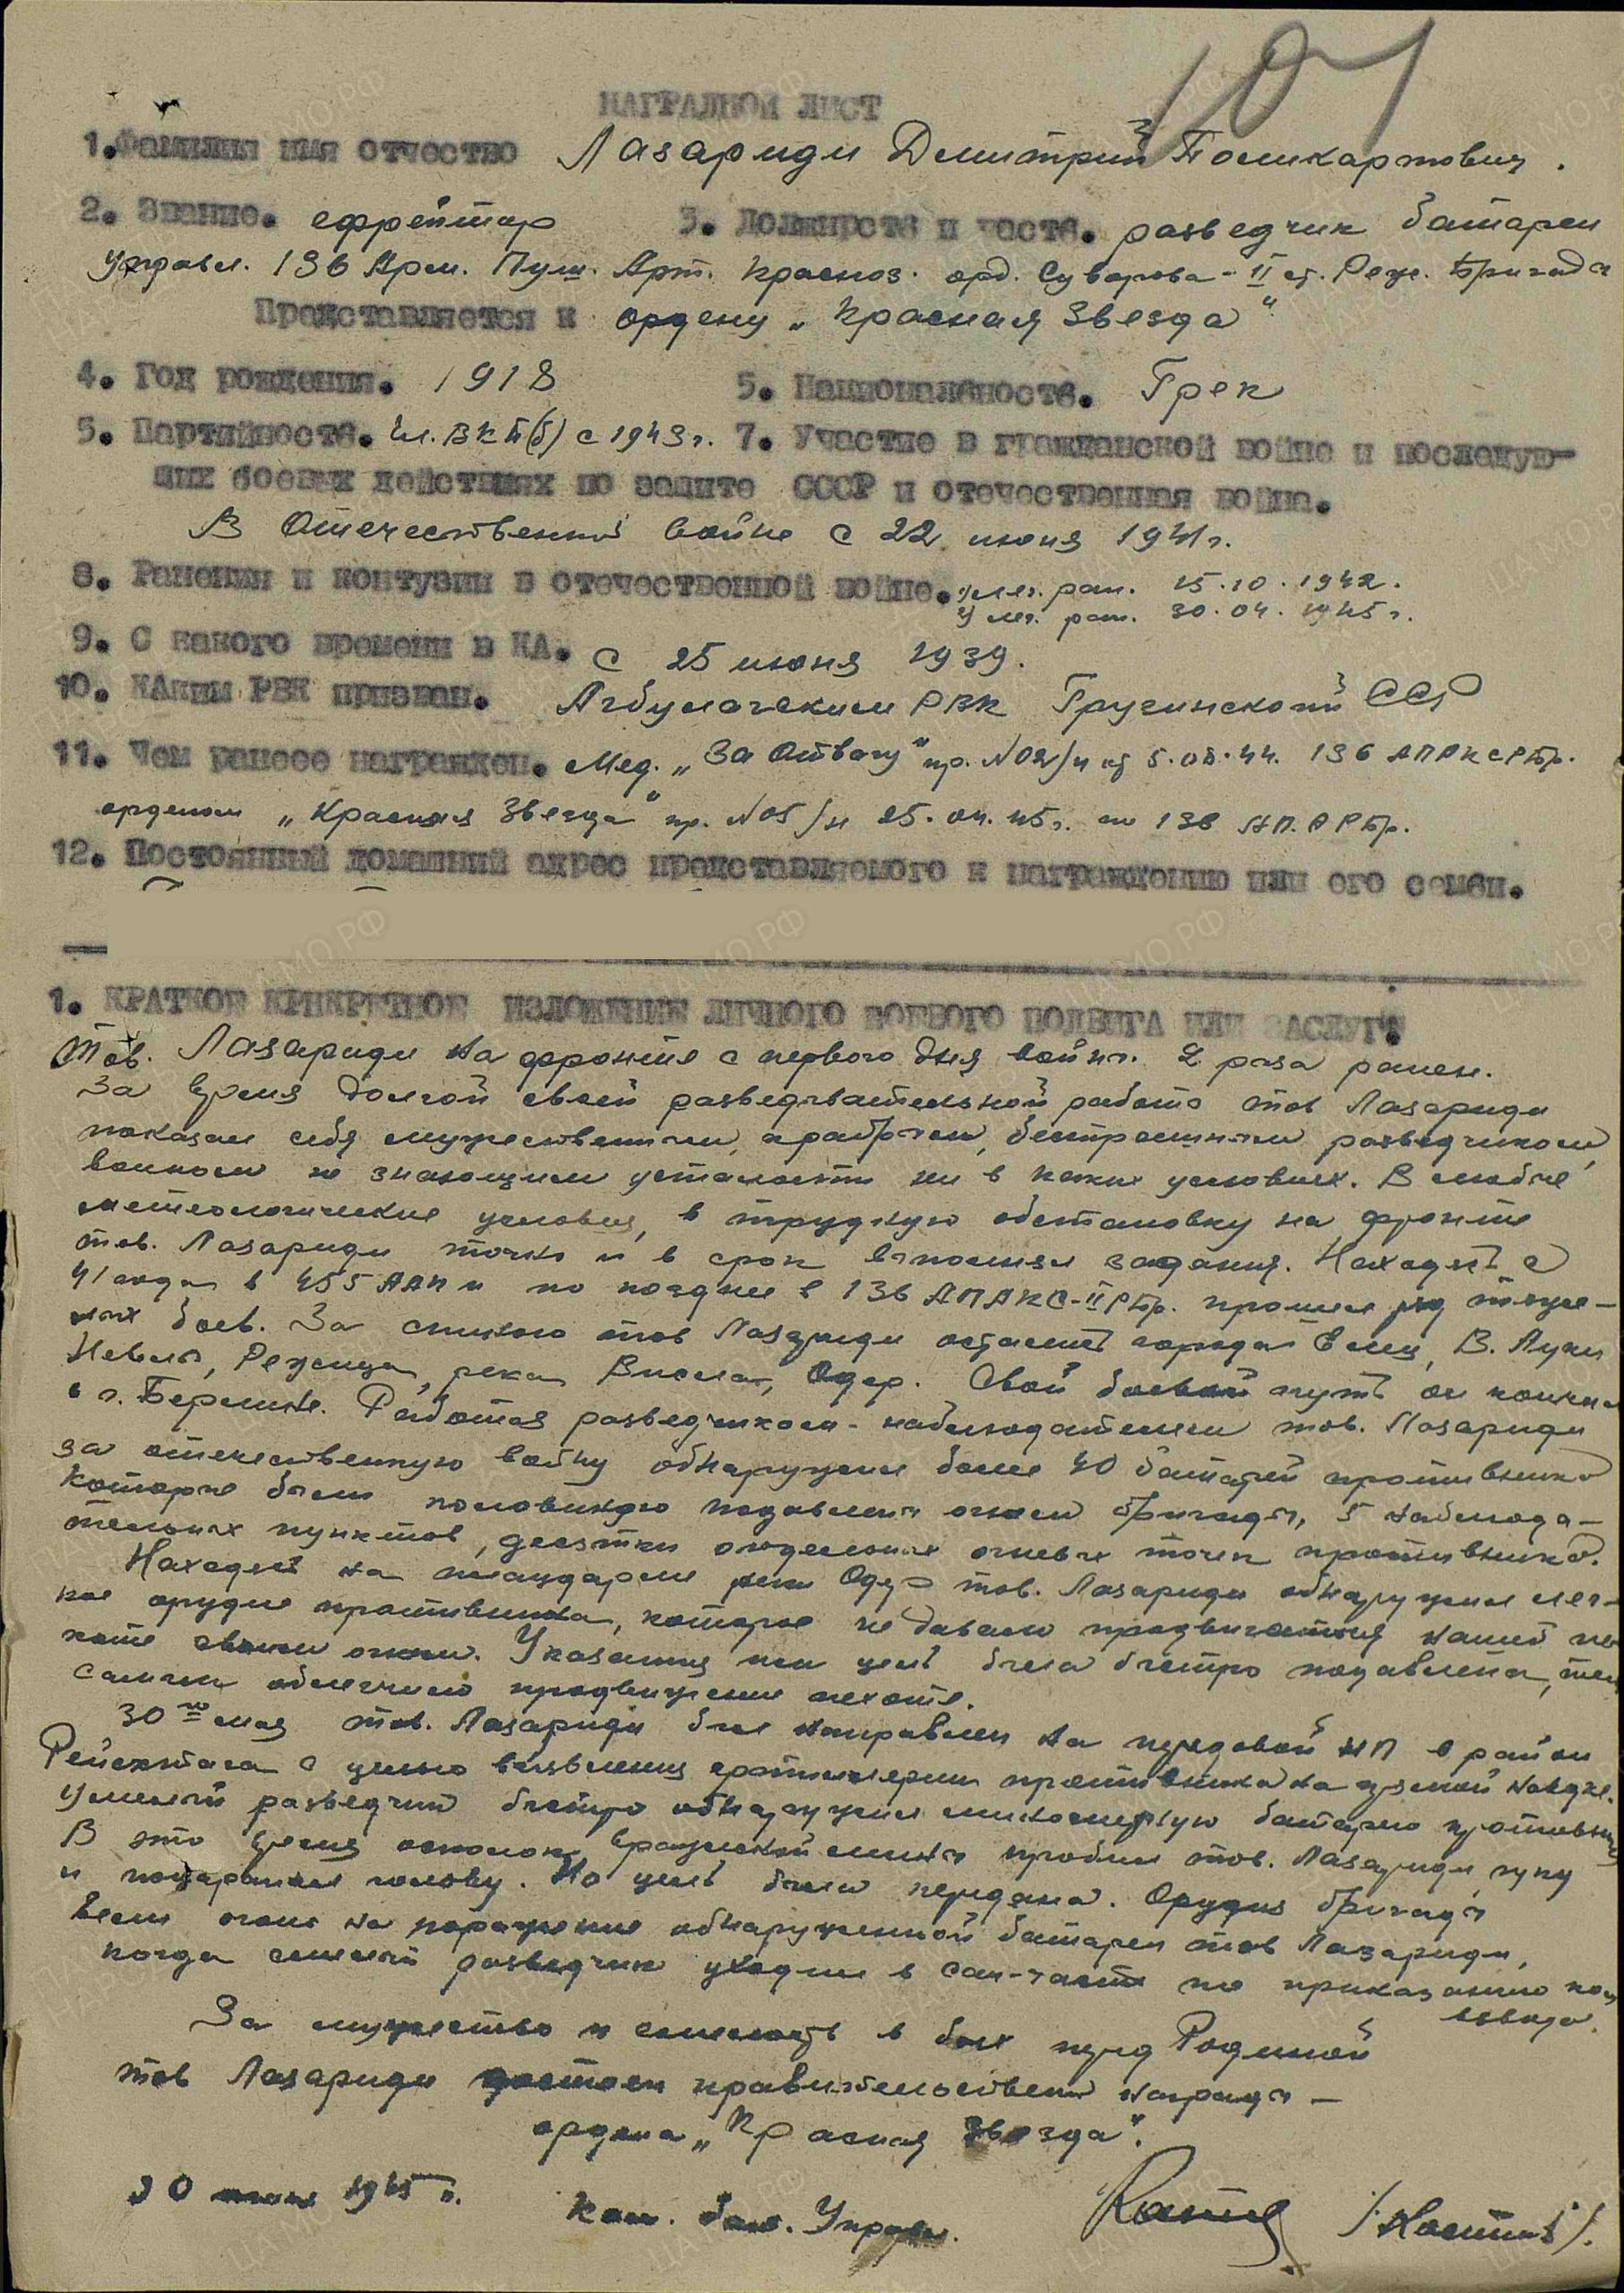 НАГРАДНОЙ ЛИСТ
1. Фамилия имя отчество Лазариди Дмитрий Поликарпович.
2. Звание. ефрейтор 3. Должность и часть. разведчик батареи
управл. 136 Арм. Пуш. Арт. Красноз. орд. Суворова-II ст. Реж. Бригада
Представляется к ордену „Красная Звезда"
4. Год рождения. 1918 5. Национальность. Грек
5. Партийность. Чл. ВКП(б) с 1943 г. 7. Участие в гражданской войне и последую-
щих боевых действиях по защите СССР и отечественная война.
В Отечественной войне с 22 июня 1941 г.
8. Ранения и контузии в отечественной войне. 1) лег. ран. 15.10.1942.
2) лег. ран. 30.04.1945 г.
9. С какого времени в КА. с 25 июня 1939.
10. КАким РВК призван. РВК Грузинской ССР
11. Чем ранее награжден. Мед. „За Отвагу" пр. №02/н от 5.08.44. 136 АПАКСРБр.
орденом „Красная Звезда" пр. №05/н 25.04.45 г. по 136 АП.АРБр.
12. Постоянный домашний адрес представляемого к награждению или его семьи.
1. КРАТКОЕ КРНКРЕТНОЕ ИЗЛОЖЕНИЕ ЛИЧНОГО БОЕВОГО ПОДВИГА ИЛИ ЗАСЛУГ:
Тов. Лазариди на фронте с первого дня войны. 2 раза ранен.
За время долгой своей разведывательной работы тов Лазариди
показал себя мужественным, храбрым, бесстрашным разведчиком,
воином не знающим усталости ни в каких условиях. В любые
метеологические условия, в трудную обстановку на фронте
тов. Лазариди точно и в срок выполнял задания. Находясь с
41 года в 455 ААП и по позднее в 136 АПАКС-IIРБр. прошел ряд тяже-
лых боев. За спиною тов Лазариди остались города В. Луки
Невель, Режица, река Висла, Одер. Свой боевой путь он кончил
в г. Берлине. Работая разведчиком-наблюдателем тов. Лазариди
за отечественную войну обнаружил более 40 батарей противника
которые были половиною подавлены огнем бригады, 5 наблюда-
тельных пунктов, десятки отдельных огневых точек противника.
Находясь на плацдарме реки Одер тов. Лазариди обнаружил лег-
кое орудие противника, которое не давало продвигаться нашей пе
хоте своим огнем. Указанная им цель была быстро подавлена, тем
самым облегчило продвижение пехоте.
30го мая тов. Лазариди был направлен на передовой НП в район
Рейхстага с целью выявления артиллерии противника на прямой наводке.
Умелый разведчик быстро обнаружил минометную батарею противника
В это время осколок вражеской мины пробил тов. Лазариди руку
и поцарапал голову. Но цель была передана. Орудия бригады
вели огонь на поражение обнаруженной батареи тов Лазариди,
когда смелый разведчик уходил в сан-часть по приказанию ком
взвода.
За мужество и смелость в боях перед Родиной
тов Лазариди достоин правительственной награды —
ордена „Красная Звезда".
1945 г. Ком. бат. Управл.